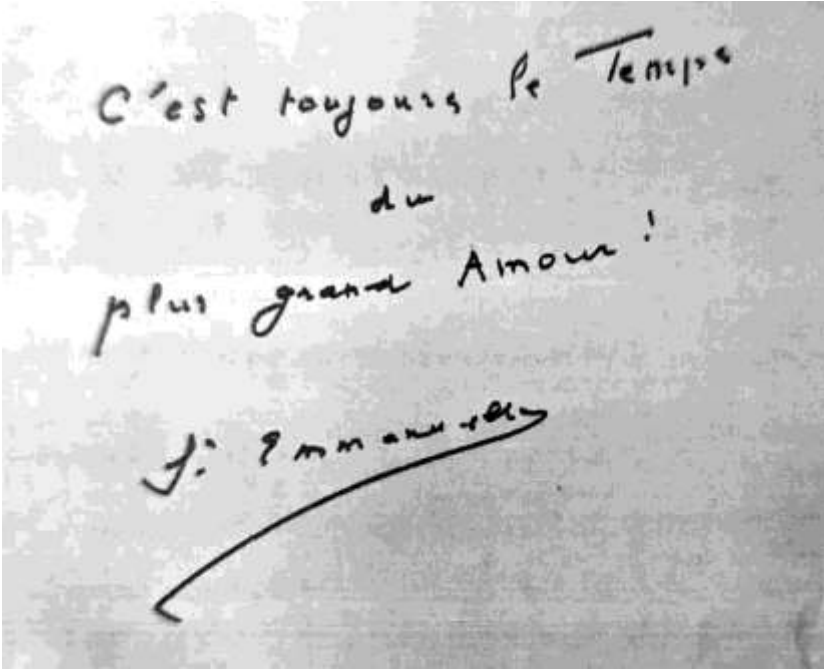 C'est toujours le Temps
du
plus grand Amour !
Sr Emmanuelle